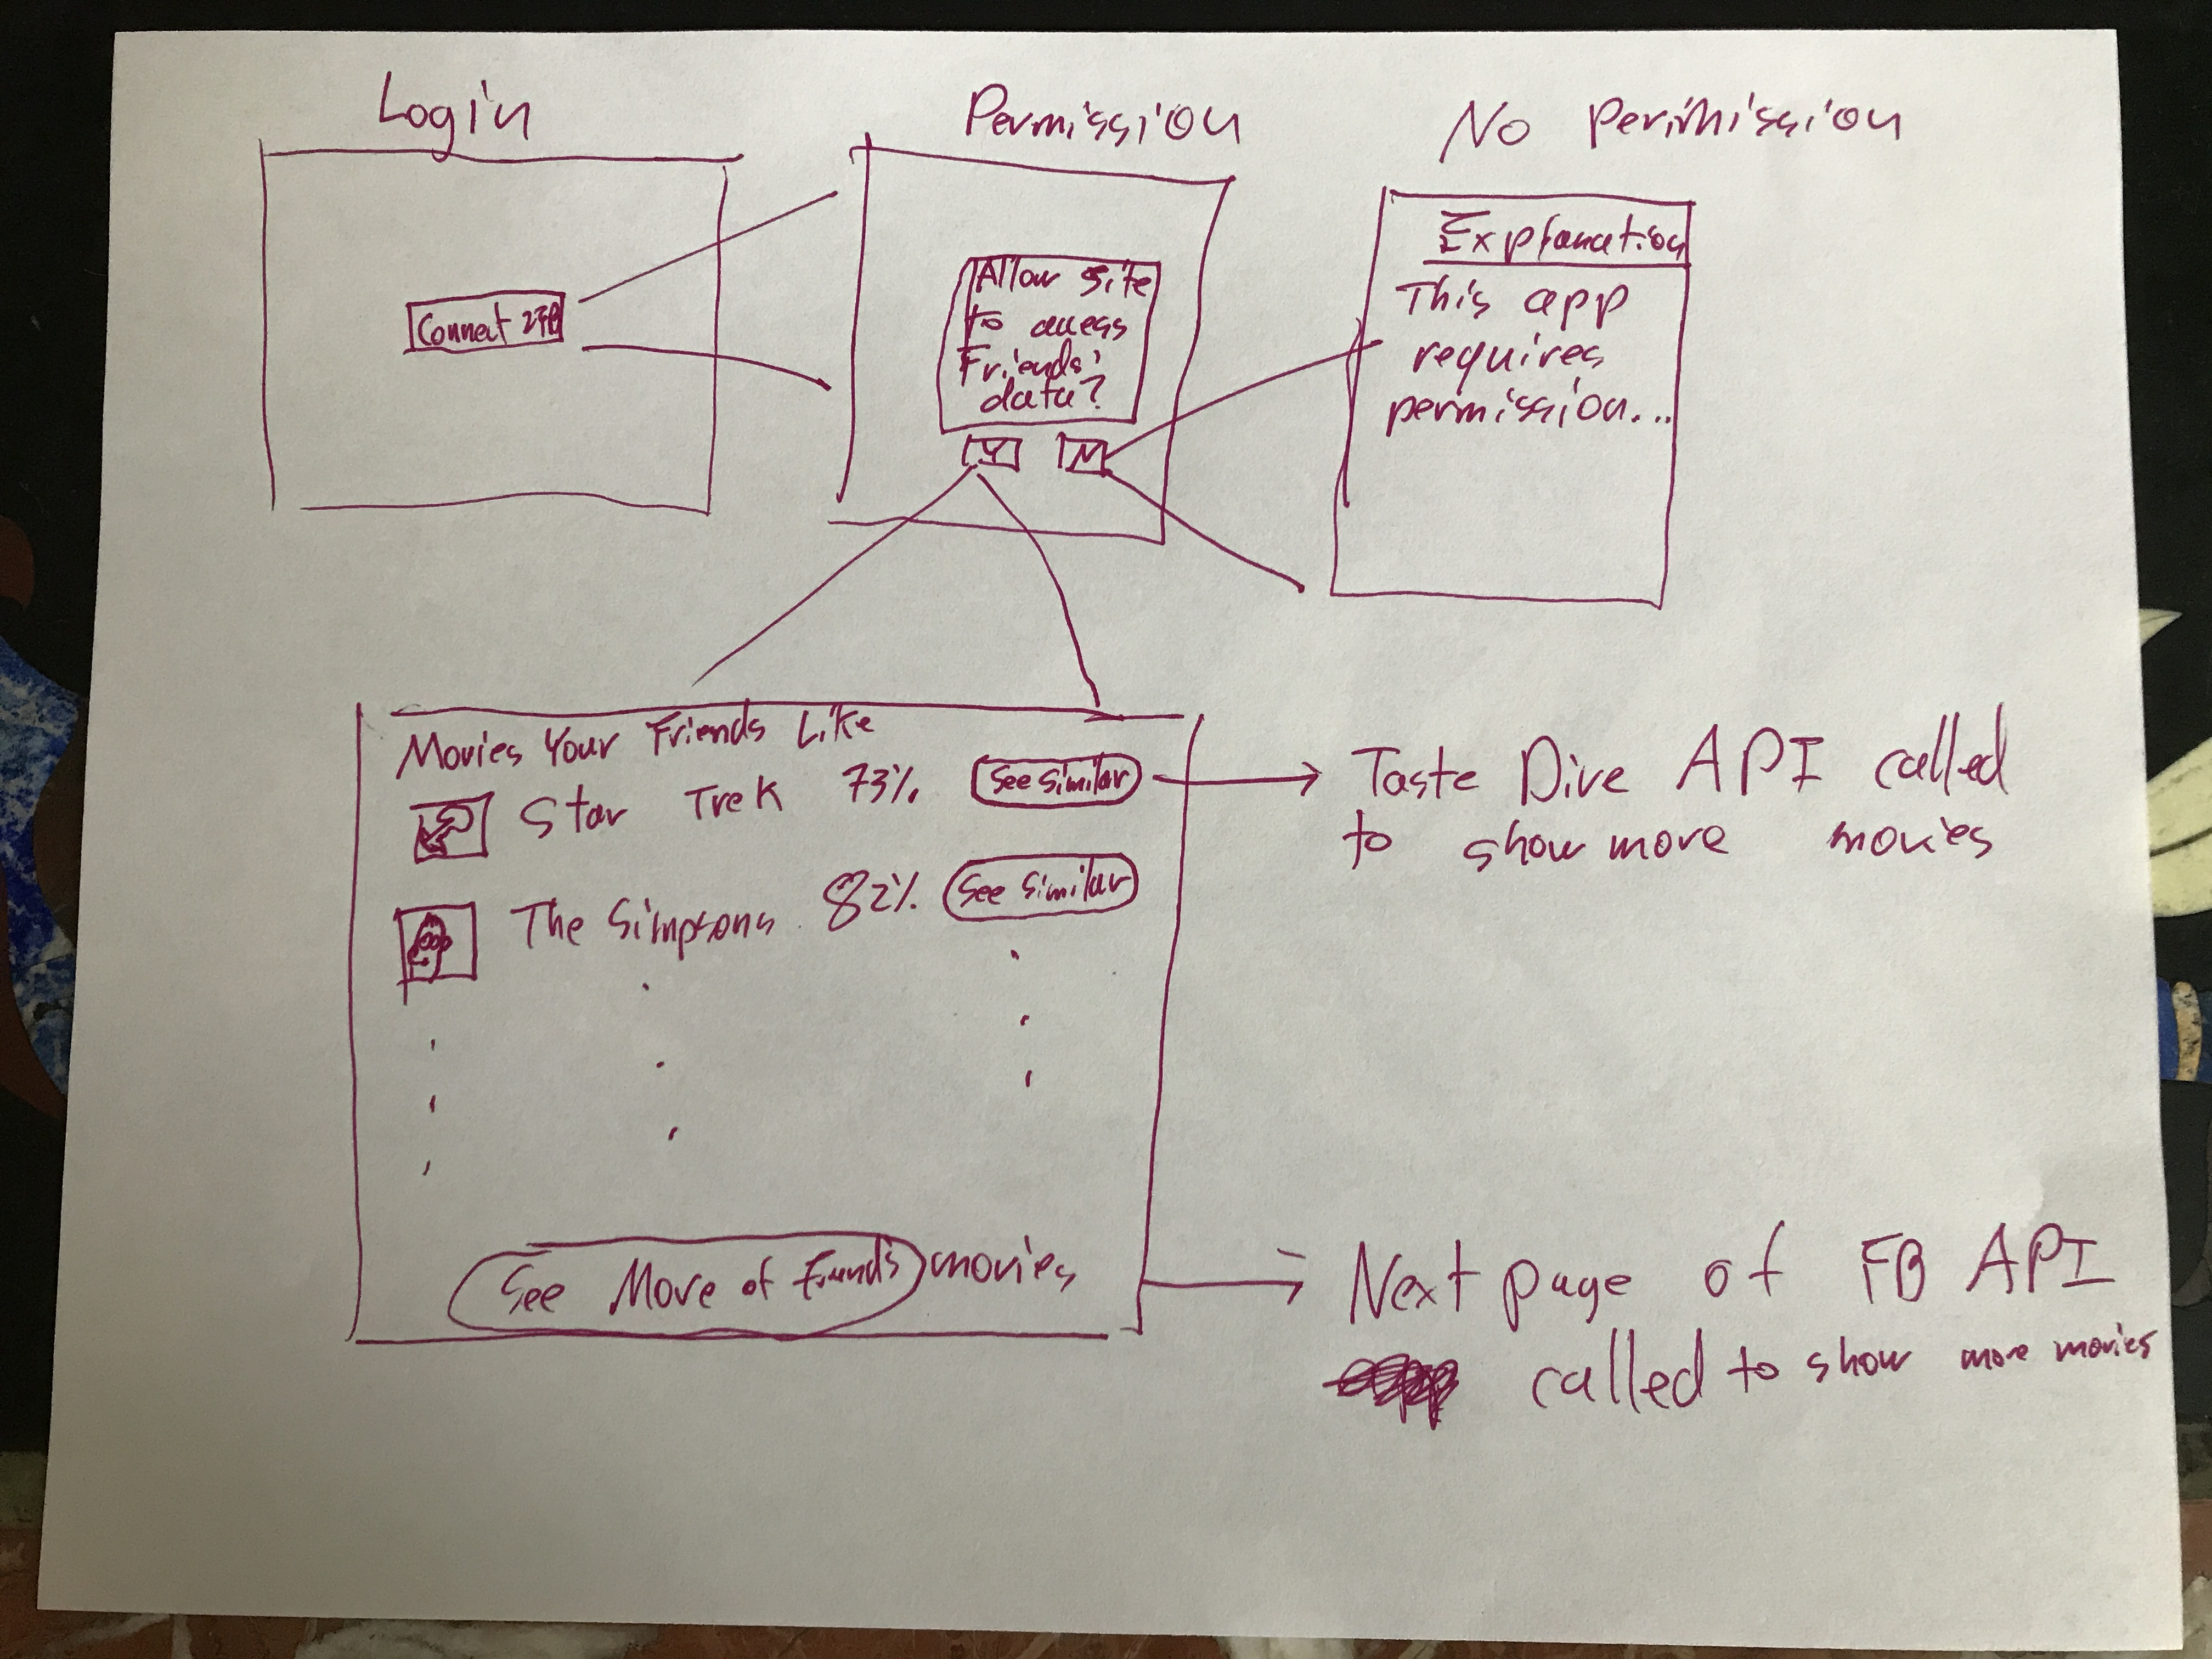 Login
Permission
No Permission
Connect
Allow site
to access
Friends'
data?
Y
N
Explanation
This app
requires
permission...
Movies Your Friends Like
Star Trek 73% See Similar
The Simpsons 82% See Similar
See More of Friend's movies
Taste Dive API called
to show more movies
Next Page of FB API
called to show more movies